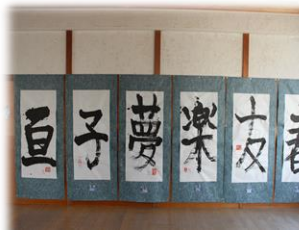 亘
子
夢
楽
友